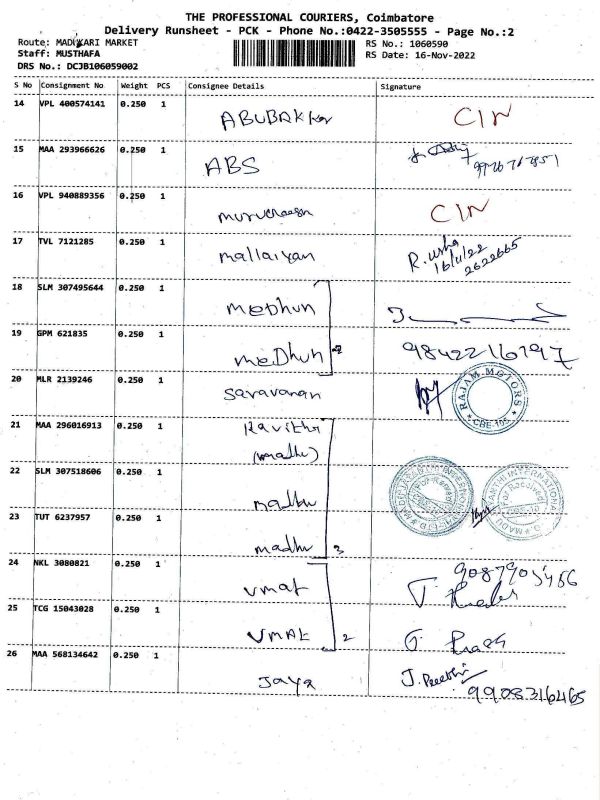 THE PROFESSIONAL COURIERS, Coimbatore
Delivery Runsheet - PCK - Phone No.:0422-3505555 - Page No.:2
Route: MADUKARI MARKET
Staff: MUSTHAFA
DRS No.: DCJB106059002
RS No.: 1060590
RS Date: 16-Nov-2022
S No Consignment No Weight PCS Consignee Details Signature
14 VPL 400574141 0.250 1 CIN
15 MAA 293966626 0.250 1 ABS
16 VPL 940889356 0.250 1 CIN
17 TVL 7121285 0.250 1 mallaiyan R. usha
16/11/22
2622665
18 SLM 307495644 0.250 1 MEDHUN
19 GPM 621835 0.250 1 MEDHUN 9842216197
20 MLR 2139246 0.250 1 saravanan RAJAM MOTORS
* CBE-105 *
21 MAA 296016913 0.250 1 Kavitha
(madhu)
22 SLM 307518606 0.250 1 madhu
23 TUT 6237957 0.250 1 madhu 3
24 NKL 3080821 0.250 1 vmat
25 TCG 15043028 0.250 1 VMAt 2
26 MAA 568134642 0.250 1 Jaya J. Preethi
9908316465